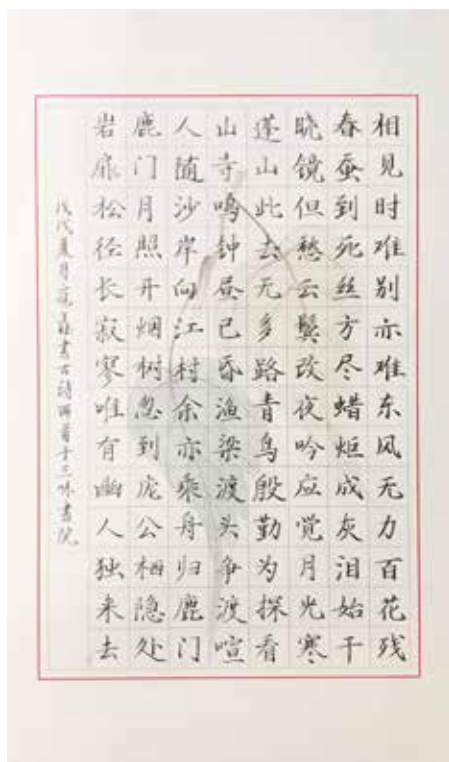 相见时难别亦难东风无力百花残
春蚕到死丝方尽蜡炬成灰泪始干
晓镜但愁云鬓改夜吟应觉月光寒
蓬山此去无多路青鸟殷勤为探看
山寺鸣钟昼已昏渔梁渡头争渡喧
人随沙岸向江村余亦乘舟归鹿门
鹿门月照开烟树忽到庞公栖隐处
岩扉松径长寂寥唯有幽人独来去
戊戌夏月書古詩兩首于三味書院